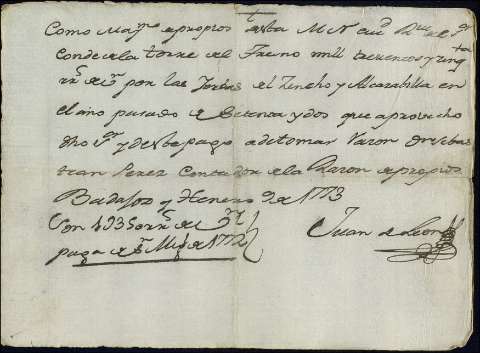 Como May.mo de propios de esta M N ciu.d el S.r
Conde de la torre del Fresno mil trescientos y
r.s de v.n por las Yerbas del Rincho y Alcazabilla en
el año pasado de setenta y dos que aprovecho
dho S.r y de este pago a de tomar razon dn Sebas
tian Perez Contador de la Razon de propios
Badajoz y Henero 9 de 1773
Son r.s de v.n
paga de S.n Mig.l de 1772
Juan de Leon